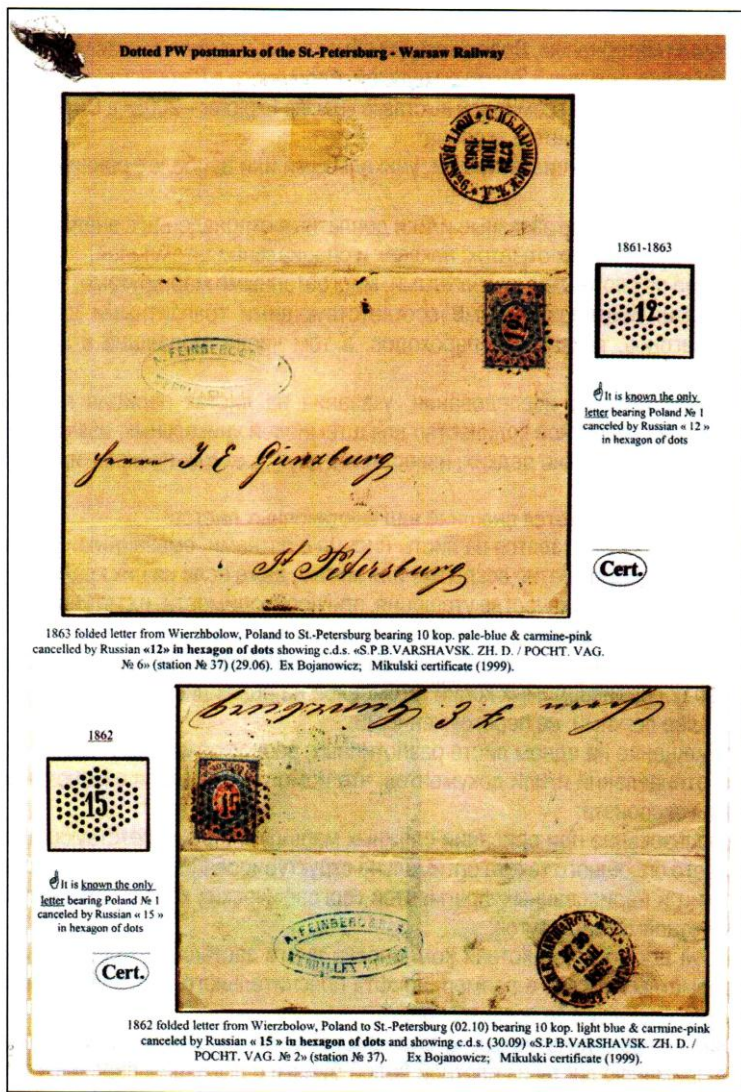 Dotted PW postmarks of the St.-Petersburg - Warsaw Railway
С.П.Б.ВАРШАВСК. Ж.Д.
3729
1863
1861-1863
12
12
It is known the only
letter bearing Poland № 1
canceled by Russian « 12 »
in hexagon of dots
A. FEINBERG
Herrn J. E. Günzburg
St. Petersburg
Cert.
1863 folded letter from Wierzhbolow, Poland to St.-Petersburg bearing 10 kop. pale-blue & carmine-pink
cancelled by Russian «12» in hexagon of dots showing c.d.s. «S.P.B.VARSHAVSK. ZH. D. / POCHT. VAG.
№ 6» (station № 37) (29.06). Ex Bojanowicz; Mikulski certificate (1999).
Herrn J. E. Günzburg
1862
15
15
It is known the only
letter bearing Poland № 1
canceled by Russian « 15 »
in hexagon of dots
A. FEINBERG
1862
Cert.
1862 folded letter from Wierzbolow, Poland to St.-Petersburg (02.10) bearing 10 kop. light blue & carmine-pink
canceled by Russian « 15 » in hexagon of dots and showing c.d.s. (30.09) «S.P.B.VARSHAVSK. ZH. D. /
POCHT. VAG. № 2» (station № 37). Ex Bojanowicz; Mikulski certificate (1999).